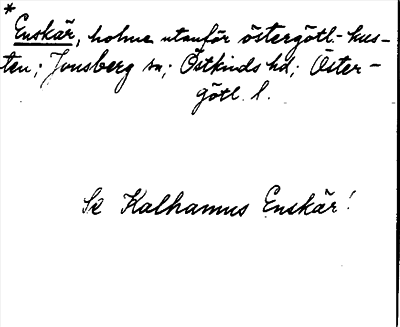 *
Enskär, holme utanför östergötl.-kus-
ten; Jonsberg sn; Östkinds hd; Öster-
götl. l.
Se Kalhamns Enskär!